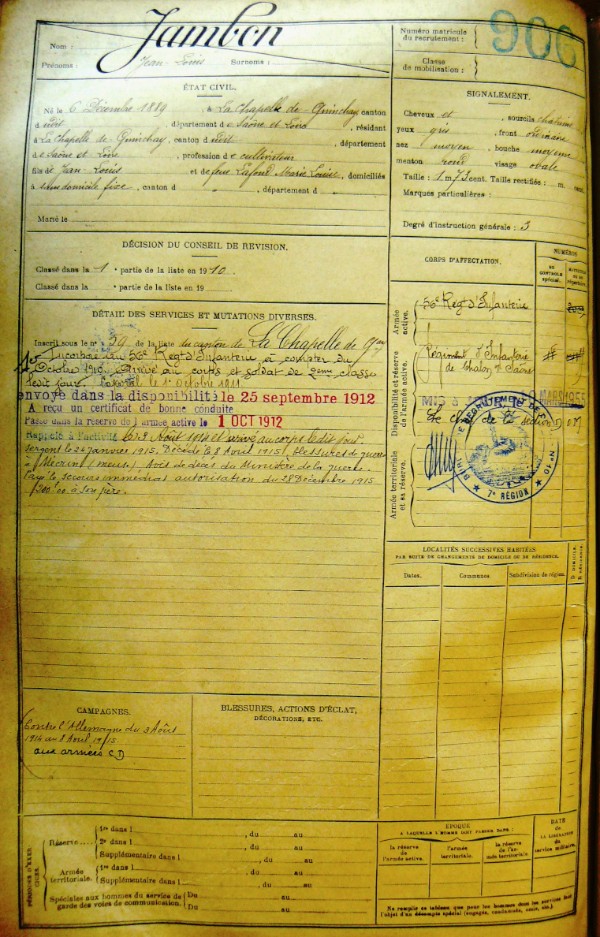 Nom : Jambon
Prénoms : Jean Louis Surnoms :
Numéro matricule du recrutement : 906
Classe de mobilisation :
ÉTAT CIVIL.
Né le 6 Décembre 1889, à La Chapelle-de-Guinchay canton
dudit, département de Saône et Loire, résidant
à La Chapelle-de-Guinchay, canton dudit, département
de Saône et Loire, profession de cultivateur
fils de Jean-Louis et de feue Lafond Marie Louise, domiciliés
à sans domicile fixe, canton d " département d "
Marié le
SIGNALEMENT.
Cheveux et sourcils châtains
yeux gris, front ordinaire
nez moyen, bouche moyenne
menton rond visage ovale
Taille : 1 m. 73 cent. Taille rectifiée : m. cent.
Marques particulières :
Degré d'instruction générale : 3
DÉCISION DU CONSEIL DE REVISION.
Classé dans la 1e partie de la liste en 1910.
Classé dans la partie de la liste en 19
DÉTAIL DES SERVICES ET MUTATIONS DIVERSES.
Inscrit sous le n° 39 de la liste du canton de La Chapelle de Gay
Incorporé au 56e Regt d'Infanterie à compter du
1er Octobre 1910. Arrivé au corps et soldat de 2ème classe
le dit jour. le 1er Octobre 1911
envoyé dans la disponibilité le 25 septembre 1912
A reçu un certificat de bonne conduite
Passé dans la réserve de l'armée active le 1 OCT 1912
Rappelé à l'activité le 3 Août 1914 et arrivé au corps le dit jour.
Sergent le 24 janvier 1915. Décédé le 8 Avril 1915 (blessures de guerre)
à Mécrin (Meuse) Avis de décès du Ministère de la guerre.
Payé le secours immédiat autorisation du 28 Décembre 1915
à son père.
CORPS D'AFFECTATION.
NUMÉROS
au contrôle spécial.
Armée active.
56e Regt d'Infanterie
Disponibilité et réserve de l'armée active.
Régiment d'Infanterie
de Chalon s/ Saône
Armée territoriale et sa réserve.
MIS A JOUR, LE
Le chef de section
7e RÉGION
LOCALITÉS SUCCESSIVES HABITÉES
PAR SUITE DE CHANGEMENTS DE DOMICILE OU DE RÉSIDENCE.
Dates.
Communes
Subdivision de région.
D. DOMICILE. R. RÉSIDENCE.
CAMPAGNES.
Contre l'Allemagne du 3 Août
1914 au 8 Avril 1915
aux armées CD
BLESSURES, ACTIONS D'ÉCLAT,
DÉCORATIONS, ETC.
PÉRIODES D'EXERCICES.
Réserve
1re dans l , du au
2e dans l , du au
Supplémentaire dans l , du au
Armée territoriale.
1re dans l , du au
Supplémentaire dans l , du au
Spéciales aux hommes du service de garde des voies de communication.
Du au
Du au
ÉPOQUE
A LAQUELLE L'HOMME DOIT PASSER DANS :
la réserve de l'armée active.
l'armée territoriale.
la réserve de l'armée territoriale.
DATE
DE LA LIBÉRATION DU
service militaire.
Ne remplir ce tableau que pour les hommes dont les services font
l'objet d'un décompte spécial (engagés, condamnés, omis, etc.)